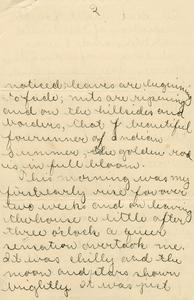 2
noticed leaves are beginning
to fade; nuts are ripening
and on the hillsides and
borders, that beautiful
forerunner of Indian
Summer, the golden rod
is in full bloom.
This morning was my
first early rise for over
two weeks and on leaving
the house a little after
three o'clock a queer
sensation overtook me.
It was chilly and the
moon and stars shown
brightly it was just